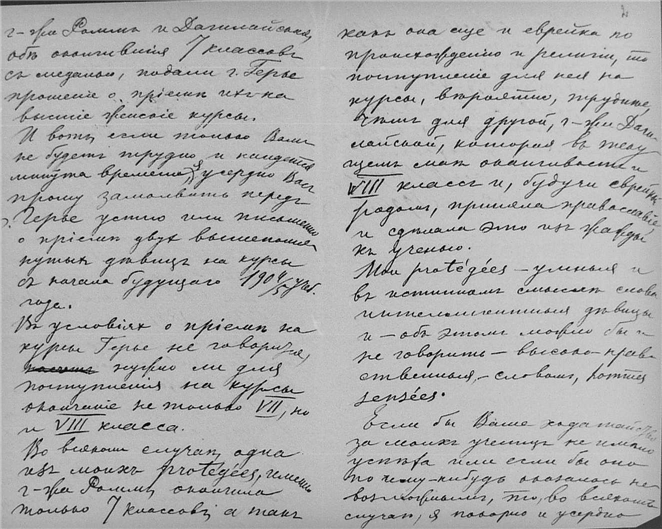 г-жа Роммъ и Дагилайская,
обѣ окончившія 7 классовъ
съ медалью, подали г. Герье
прошеніе о пріемѣ ихъ на
высшіе женскіе курсы.
И вотъ, если только Вамъ
не будетъ трудно и найдется
минута времени, усердно Васъ
прошу замолвить передъ
Герье устно или письменно
о пріемѣ двухъ вышепомя-
нутыхъ дѣвицъ на курсы
съ начала будущаго 1904/5 учеб.
года.
Въ условіяхъ о пріемѣ на
курсы Герье не говорится,
нужно ли для
поступленія на курсы
окончаніе не только VII, но
и VIII класса.
Во всякомъ случаѣ, одна
изъ моихъ protégées, именно
г-жа Роммъ, окончила
только 7 классовъ, а такъ
какъ она еще и еврейка по
происхожденію и религіи, то
поступленіе для нея на
курсы, вѣроятно, труднѣе,
чѣмъ для другой, г-жи Даги-
лайской, которая въ теку-
щемъ маѣ оканчиваетъ и
VIII классъ и, будучи еврейк.
родомъ, приняла православіе,
и сдѣлала это изъ жажды
къ ученью.
Мои protégées – умныя и
въ истинномъ смыслѣ слова
интеллигентныя дѣвицы
и – объ этомъ можно бы и
не говорить – высоко-нрав-
ственныя, – словомъ, hommes
sensées.
Если бы Ваше ходатайство
за моихъ ученицъ не имѣло
успѣха или если бы оно
почему-нибудь оказалось не-
возможнымъ, то, во всякомъ
случаѣ, я покорно и усердно